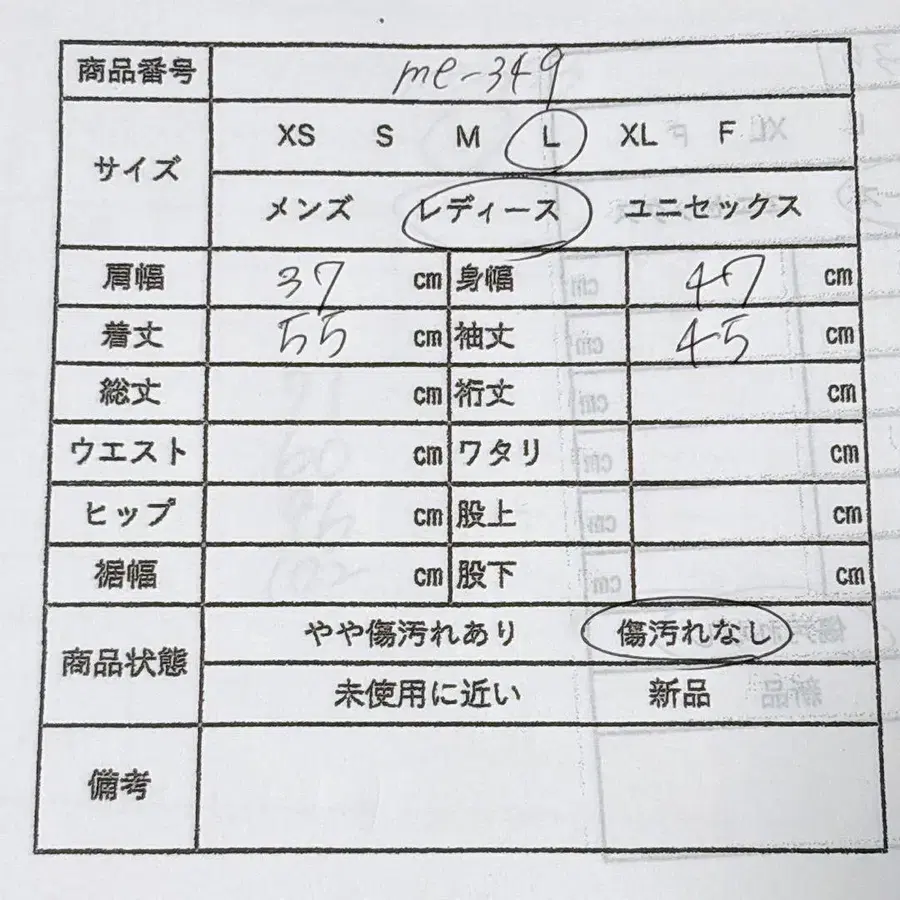 商品番号 me-349
サイズ XS S M L XL F
メンズ レディース ユニセックス
肩幅 37 cm 身幅 47 cm
着丈 55 cm 袖丈 45 cm
総丈 cm 裄丈 cm
ウエスト cm ワタリ cm
ヒップ cm 股上 cm
裾幅 cm 股下 cm
商品状態 やや傷汚れあり 傷汚れなし
未使用に近い 新品
備考